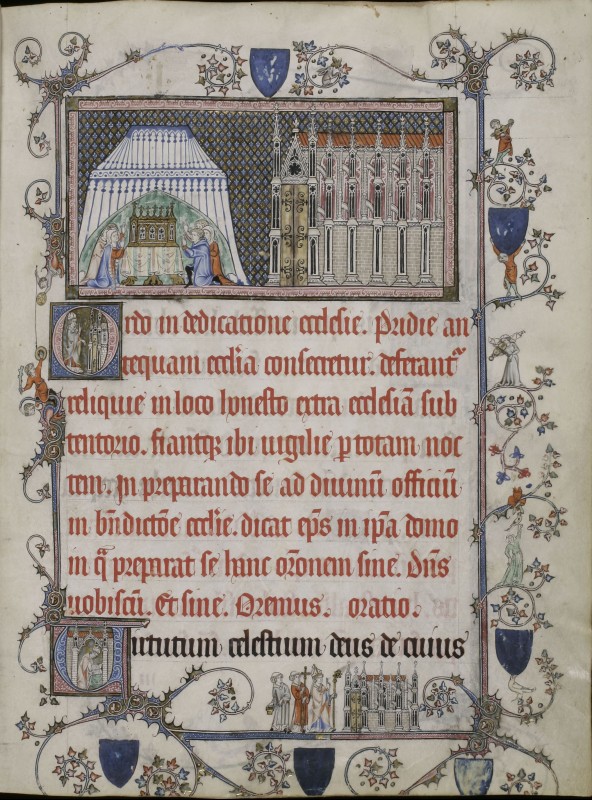 Ordo in dedicatione ecclesie. Pridie an
tequam ecclīa consecretur. deferantʳ
reliquie in loco honesto extra ecclesiā sub
tentorio. fiantqꝫ ibi uigilie ꝑ totam noc
tem. In preparando se ad diuinū officiū
in bn̄dictōe ecclīe. dicat ep̄s in ip̄a domo
in q̄ preparat se hanc orōnem sine. Dn̄s
uobiscū. Et sine. Oremus. oratio.
Uirtutum celestium deus de cuius